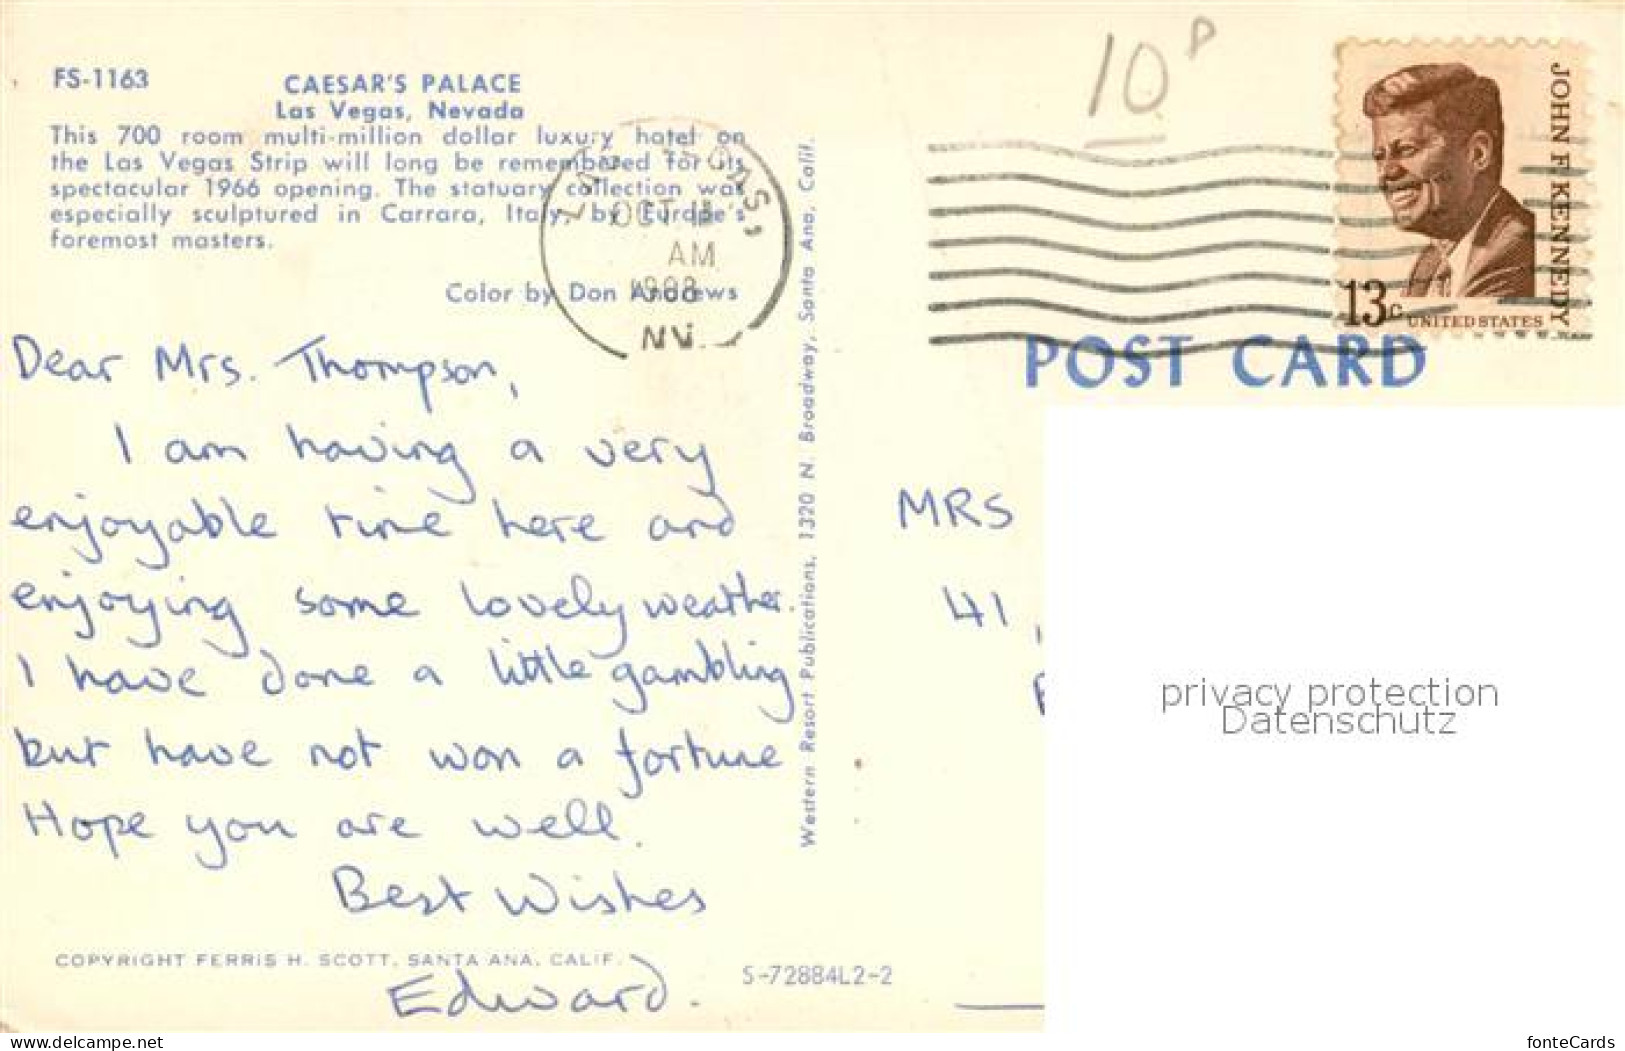 FS-1163
CAESAR'S PALACE
Las Vegas, Nevada
This 700 room multi-million dollar luxury hotel on
the Las Vegas Strip will long be remembered for its
spectacular 1966 opening. The statuary collection was
especially sculptured in Carrara, Italy, by Europe's
foremost masters.
Color by Don Andrews
OCT
AM
NV.
Dear Mrs. Thompson,
I am having a very
enjoyable time here and
enjoying some lovely weather.
I have done a little gambling
but have not won a fortune
Hope you are well.
Best Wishes
Edward.
COPYRIGHT FERRIS H. SCOTT, SANTA ANA, CALIF.
S-72884L2-2
Western Resort Publications, 1320 N. Broadway, Santa Ana, Calif.
10P
JOHN F. KENNEDY
13c
UNITED STATES
POST CARD
MRS
41
privacy protection
Datenschutz
www.delcampe.net
fonteCards